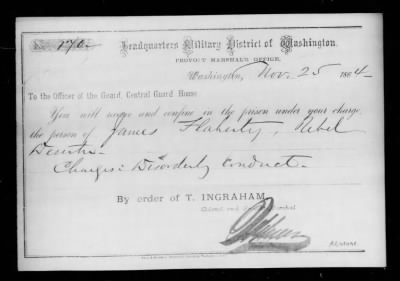 176.
Headquarters Military District of Washington,
PROVOST MARSHAL'S OFFICE,
Washington, Nov. 25 1864
To the Officer of the Guard, Central Guard House
You will receive and confine in the prison under your charge,
the person of James Flaherty, Rebel
Deserter.
Charges: Disorderly conduct.
By order of T. INGRAHAM,
Colonel and Provost Marshal